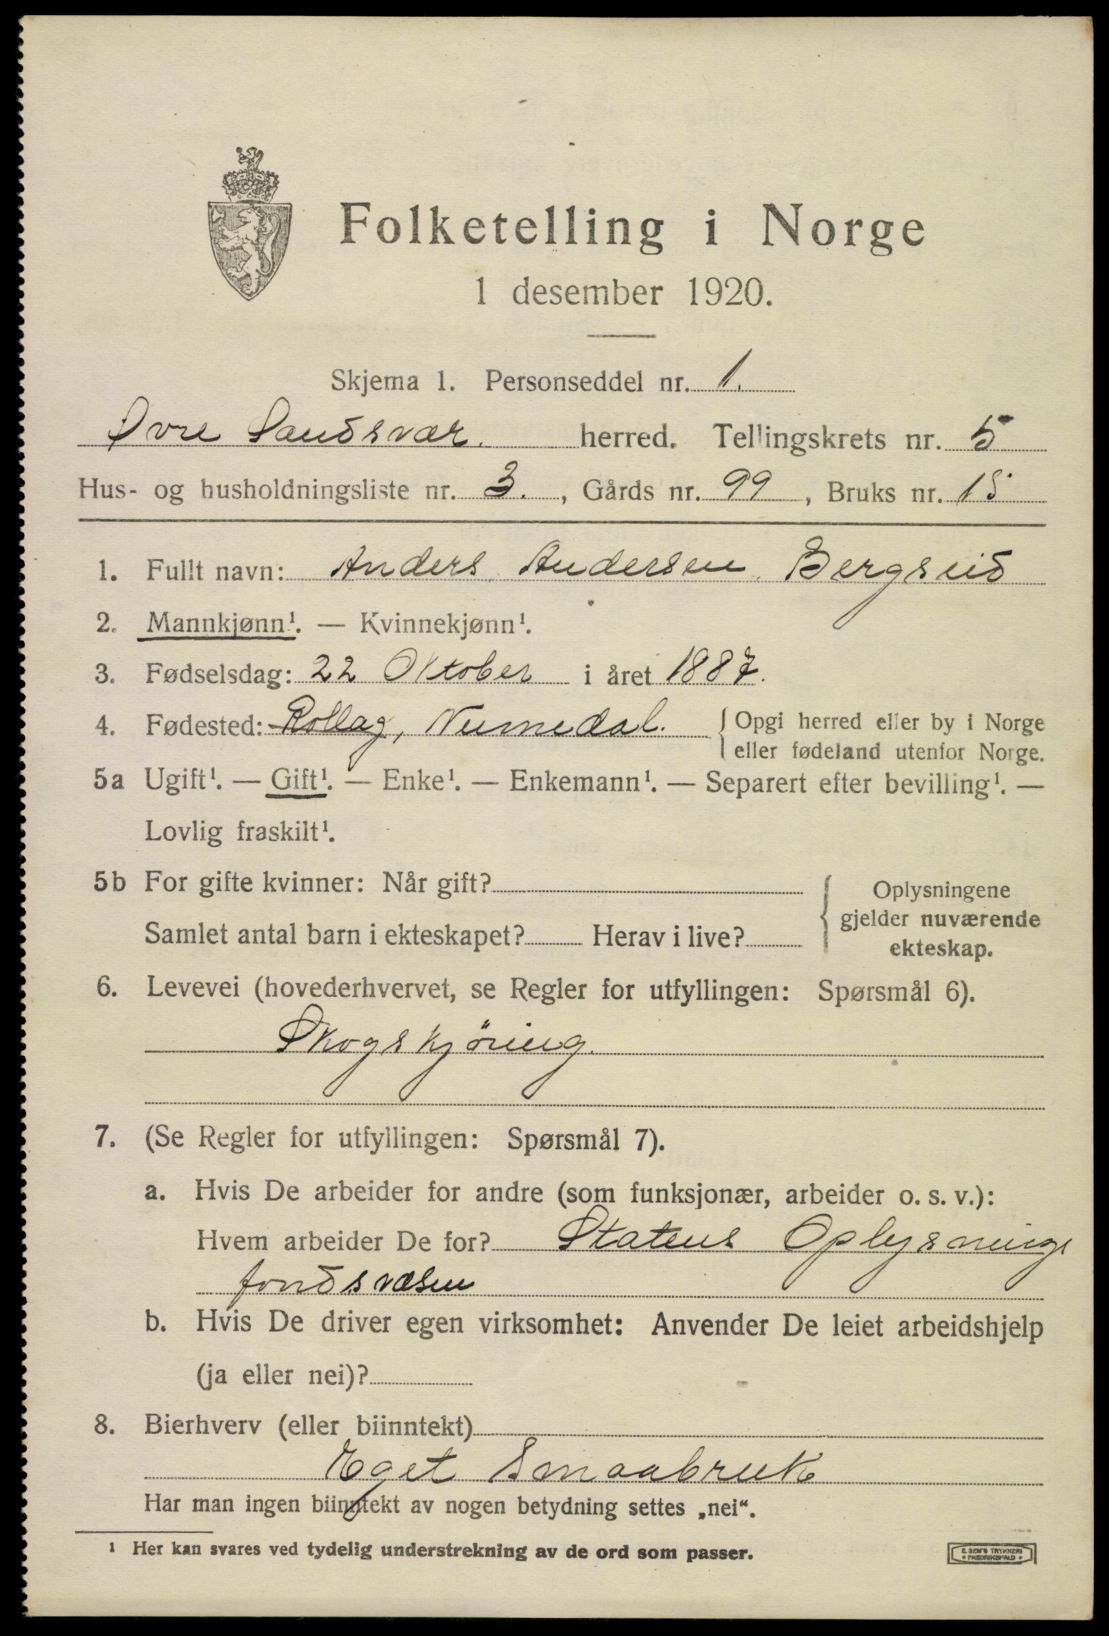 Folketelling i Norge
1 desember 1920.
Skjema 1. Personseddel nr. 1.
Øvre Sandsvær. herred. Tellingskrets nr. 5
Hus- og husholdningsliste nr. 3. , Gårds nr. 99 , Bruks nr. 15
1. Fullt navn: Anders Andersen Bergseid
2. Mannkjønn¹. — Kvinnekjønn¹.
3. Fødselsdag: 22 Oktober i året 1887.
4. Fødested: Rollag, Numedal. Opgi herred eller by i Norge
eller fødeland utenfor Norge.
5a Ugift¹. — Gift¹. — Enke¹. — Enkemann¹. — Separert efter bevilling¹. —
Lovlig fraskilt¹.
5b For gifte kvinner: Når gift?
Samlet antal barn i ekteskapet? Herav i live?
Oplysningene
gjelder nuværende
ekteskap.
6. Levevei (hovederhvervet, se Regler for utfyllingen: Spørsmål 6).
Skogskjøring.
7. (Se Regler for utfyllingen: Spørsmål 7).
a. Hvis De arbeider for andre (som funksjonær, arbeider o. s. v.):
Hvem arbeider De for? Statens Oplysnings
fondsvæsen
b. Hvis De driver egen virksomhet: Anvender De leiet arbeidshjelp
(ja eller nei)?
8. Bierhverv (eller biinntekt)
Eget Smaabruk
Har man ingen biinntekt av nogen betydning settes „nei“.
¹ Her kan svares ved tydelig understrekning av de ord som passer.